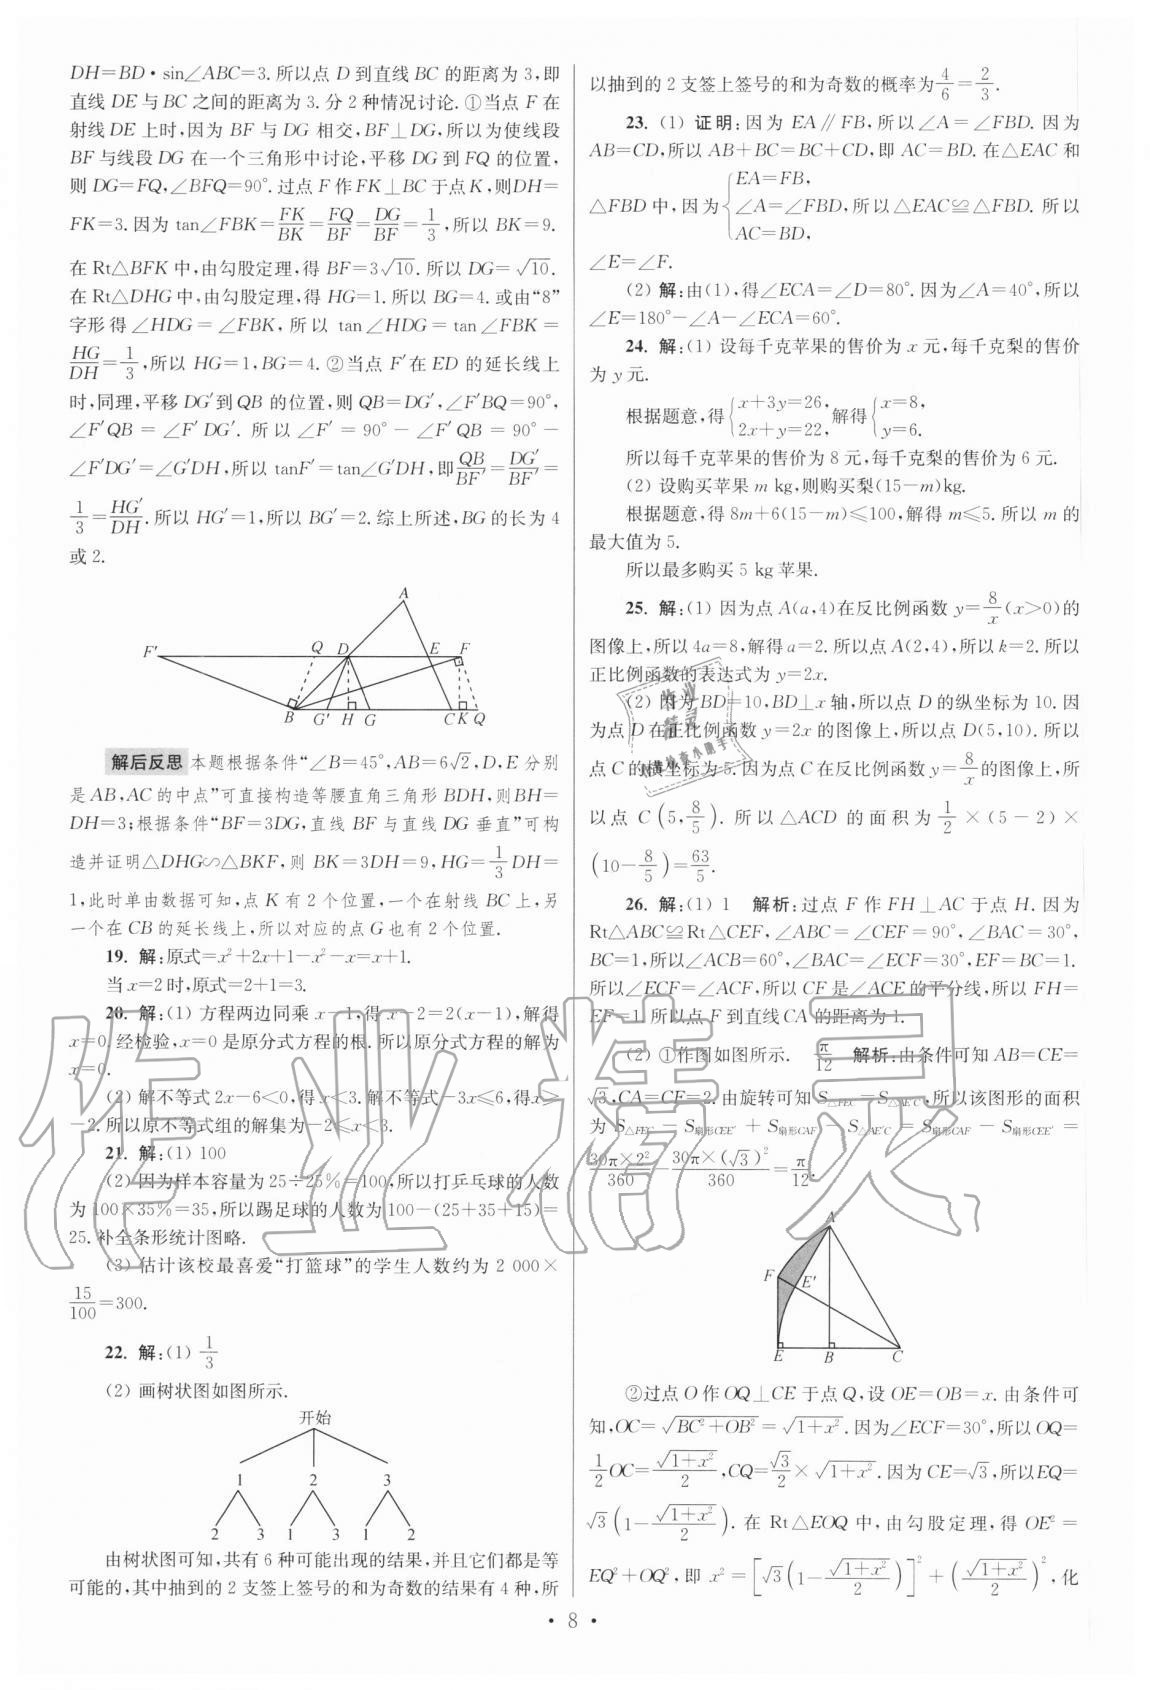 DH=BD·sin∠ABC=3.所以点 D 到直线 BC 的距离为 3,即
直线 DE 与 BC 之间的距离为 3.分 2 种情况讨论.①当点 F 在
射线 DE 上时,因为 BF 与 DG 相交,BF⊥DG,所以为使线段
BF 与线段 DG 在一个三角形中讨论,平移 DG 到 FQ 的位置,
则 DG=FQ,∠BFQ=90°.过点 F 作 FK⊥BC 于点 K,则DH=
FK=3.因为 tan∠FBK=FK/BK=FQ/BF=DG/BF=1/3,所以 BK=9.
在 Rt△BFK 中,由勾股定理,得 BF=3√10.所以 DG=√10.
在 Rt△DHG 中,由勾股定理,得 HG=1.所以 BG=4.或由“8”
字形得∠HDG=∠FBK,所以 tan∠HDG=tan∠FBK=
HG/DH=1/3,所以 HG=1,BG=4.②当点 F′在 ED 的延长线上
时,同理,平移 DG′到 QB 的位置,则 QB=DG′,∠F′BQ=90°,
∠F′QB=∠F′DG′.所以∠F′=90°-∠F′QB=90°-
∠F′DG′=∠G′DH,所以 tanF′=tan∠G′DH,即QB/BF′=DG′/BF′=
1/3=HG′/DH.所以 HG′=1,所以 BG′=2.综上所述,BG 的长为 4
或 2.
A
F′ Q D E F
B G′ H G C K Q
解后反思 本题根据条件“∠B=45°,AB=6√2,D,E 分别
是 AB,AC 的中点”可直接构造等腰直角三角形 BDH,则BH=
DH=3;根据条件“BF=3DG,直线 BF 与直线 DG 垂直”可构
造并证明△DHG∽△BKF,则 BK=3DH=9,HG=1/3DH=
1,此时单由数据可知,点 K 有 2 个位置,一个在射线 BC 上,另
一个在 CB 的延长线上,所以对应的点 G 也有 2 个位置.
19. 解:原式=x²+2x+1-x²-x=x+1.
当 x=2 时,原式=2+1=3.
20. 解:(1) 方程两边同乘 x-1,得 x-2=2(x-1),解得
x=0.经检验,x=0 是原分式方程的根.所以原分式方程的解为
x=0.
(2) 解不等式 2x-6<0,得 x<3.解不等式-3x≤6,得x≥
-2.所以原不等式组的解集为-2≤x<3.
21. 解:(1) 100
(2) 因为样本容量为 25÷25%=100,所以打乒乓球的人数
为 100×35%=35,所以踢足球的人数为 100-(25+35+15)=
25.补全条形统计图略.
(3) 估计该校最喜爱“打篮球”的学生人数约为 2 000×
15/100=300.
22. 解:(1) 1/3
(2) 画树状图如图所示.
开始
1 2 3
2 3 1 3 1 2
由树状图可知,共有 6 种可能出现的结果,并且它们都是等
可能的,其中抽到的 2 支签上签号的和为奇数的结果有 4 种,所
以抽到的 2 支签上签号的和为奇数的概率为4/6=2/3.
23. (1) 证明:因为 EA∥FB,所以∠A=∠FBD.因为
AB=CD,所以 AB+BC=BC+CD,即 AC=BD.在△EAC 和
△FBD 中,因为{EA=FB, ∠A=∠FBD, AC=BD,所以△EAC≌△FBD.所以
∠E=∠F.
(2) 解:由(1),得∠ECA=∠D=80°.因为∠A=40°,所以
∠E=180°-∠A-∠ECA=60°.
24. 解:(1) 设每千克苹果的售价为 x 元,每千克梨的售价
为 y 元.
根据题意,得{x+3y=26, 2x+y=22,解得{x=8, y=6.
所以每千克苹果的售价为 8 元,每千克梨的售价为 6 元.
(2) 设购买苹果 m kg,则购买梨(15-m)kg.
根据题意,得 8m+6(15-m)≤100,解得 m≤5.所以 m 的
最大值为 5.
所以最多购买 5 kg 苹果.
25. 解:(1) 因为点 A(a,4)在反比例函数 y=8/x(x>0)的
图像上,所以 4a=8,解得 a=2.所以点 A(2,4),所以 k=2.所以
正比例函数的表达式为 y=2x.
(2) 因为 BD=10,BD⊥x 轴,所以点 D 的纵坐标为 10.因
为点 D 在正比例函数 y=2x 的图像上,所以点 D(5,10).所以
点 C 的横坐标为 5.因为点 C 在反比例函数 y=8/x的图像上,所
以点 C(5,8/5).所以△ACD 的面积为1/2×(5-2)×
(10-8/5)=63/5.
26. 解:(1) 1 解析:过点 F 作 FH⊥AC 于点 H.因为
Rt△ABC≌Rt△CEF,∠ABC=∠CEF=90°,∠BAC=30°,
BC=1,所以∠ACB=60°,∠BAC=∠ECF=30°,EF=BC=1.
所以∠ECF=∠ACF,所以 CF 是∠ACE 的平分线,所以 FH=
EF=1.所以点 F 到直线 CA 的距离为 1.
(2) ①作图如图所示. π/12 解析:由条件可知 AB=CE=
√3,CA=CF=2.由旋转可知 S△FEC=S△AE′C,所以该图形的面积
为 S△FEC-S扇形CEE′+S扇形CAF-S△AE′C=S扇形CAF-S扇形CEE′=
30π×2²/360-30π×(√3)²/360=π/12.
A
F E′
E B C
②过点 O 作 OQ⊥CE 于点 Q,设 OE=OB=x.由条件可
知,OC=√(BC²+OB²)=√(1+x²).因为∠ECF=30°,所以 OQ=
1/2OC=√(1+x²)/2,CQ=√3/2×√(1+x²).因为 CE=√3,所以EQ=
√3(1-√(1+x²)/2).在 Rt△EOQ 中,由勾股定理,得 OE²=
EQ²+OQ²,即 x²=[√3(1-√(1+x²)/2)]²+(√(1+x²)/2)²,化
· 8 ·
作业精灵